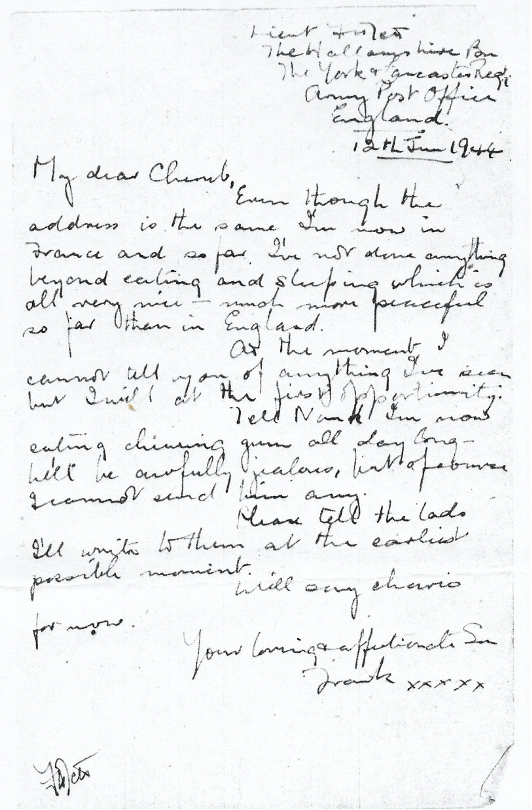 Lieut
The Hallamshire Bn
The York & Lancaster Regt.
Army Post Office
England.
12th Jun 1944
My dear Cherub,
Even though the
address is the same I'm now in
France and so far I've not done anything
beyond eating and sleeping which is
all very nice – much more peaceful
so far than in England.
At the moment I
cannot tell you of anything I've seen
but I will at the first opportunity.
Tell I'm now
eating chewing gum all day long –
he'll be awfully jealous, but of course
I cannot send him any.
Please tell the lads
I'll write to them at the earliest
possible moment.
Will say cheerio
for now.
Your loving & affectionate Son
Frank xxxxx